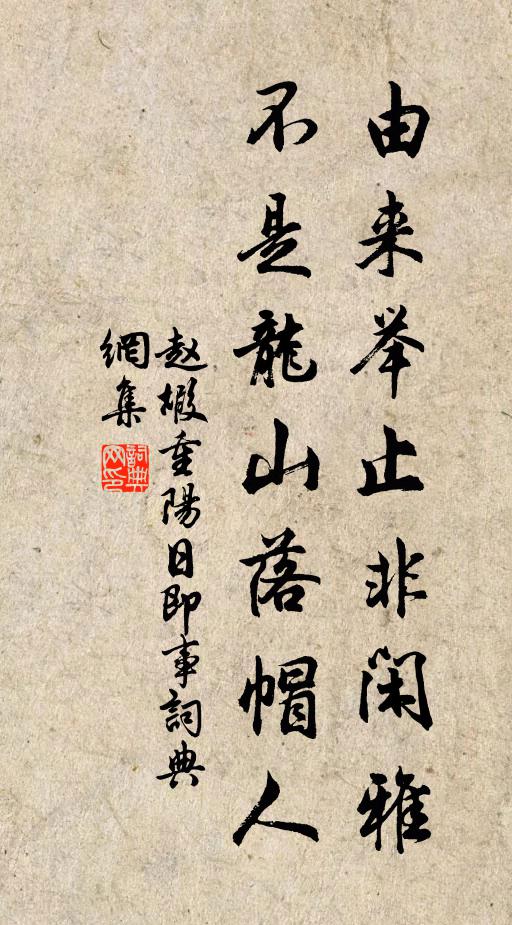 由来举止非闲雅
不是龍山落帽人
赵嘏重陽日即事詞典
網集
詞典
网印